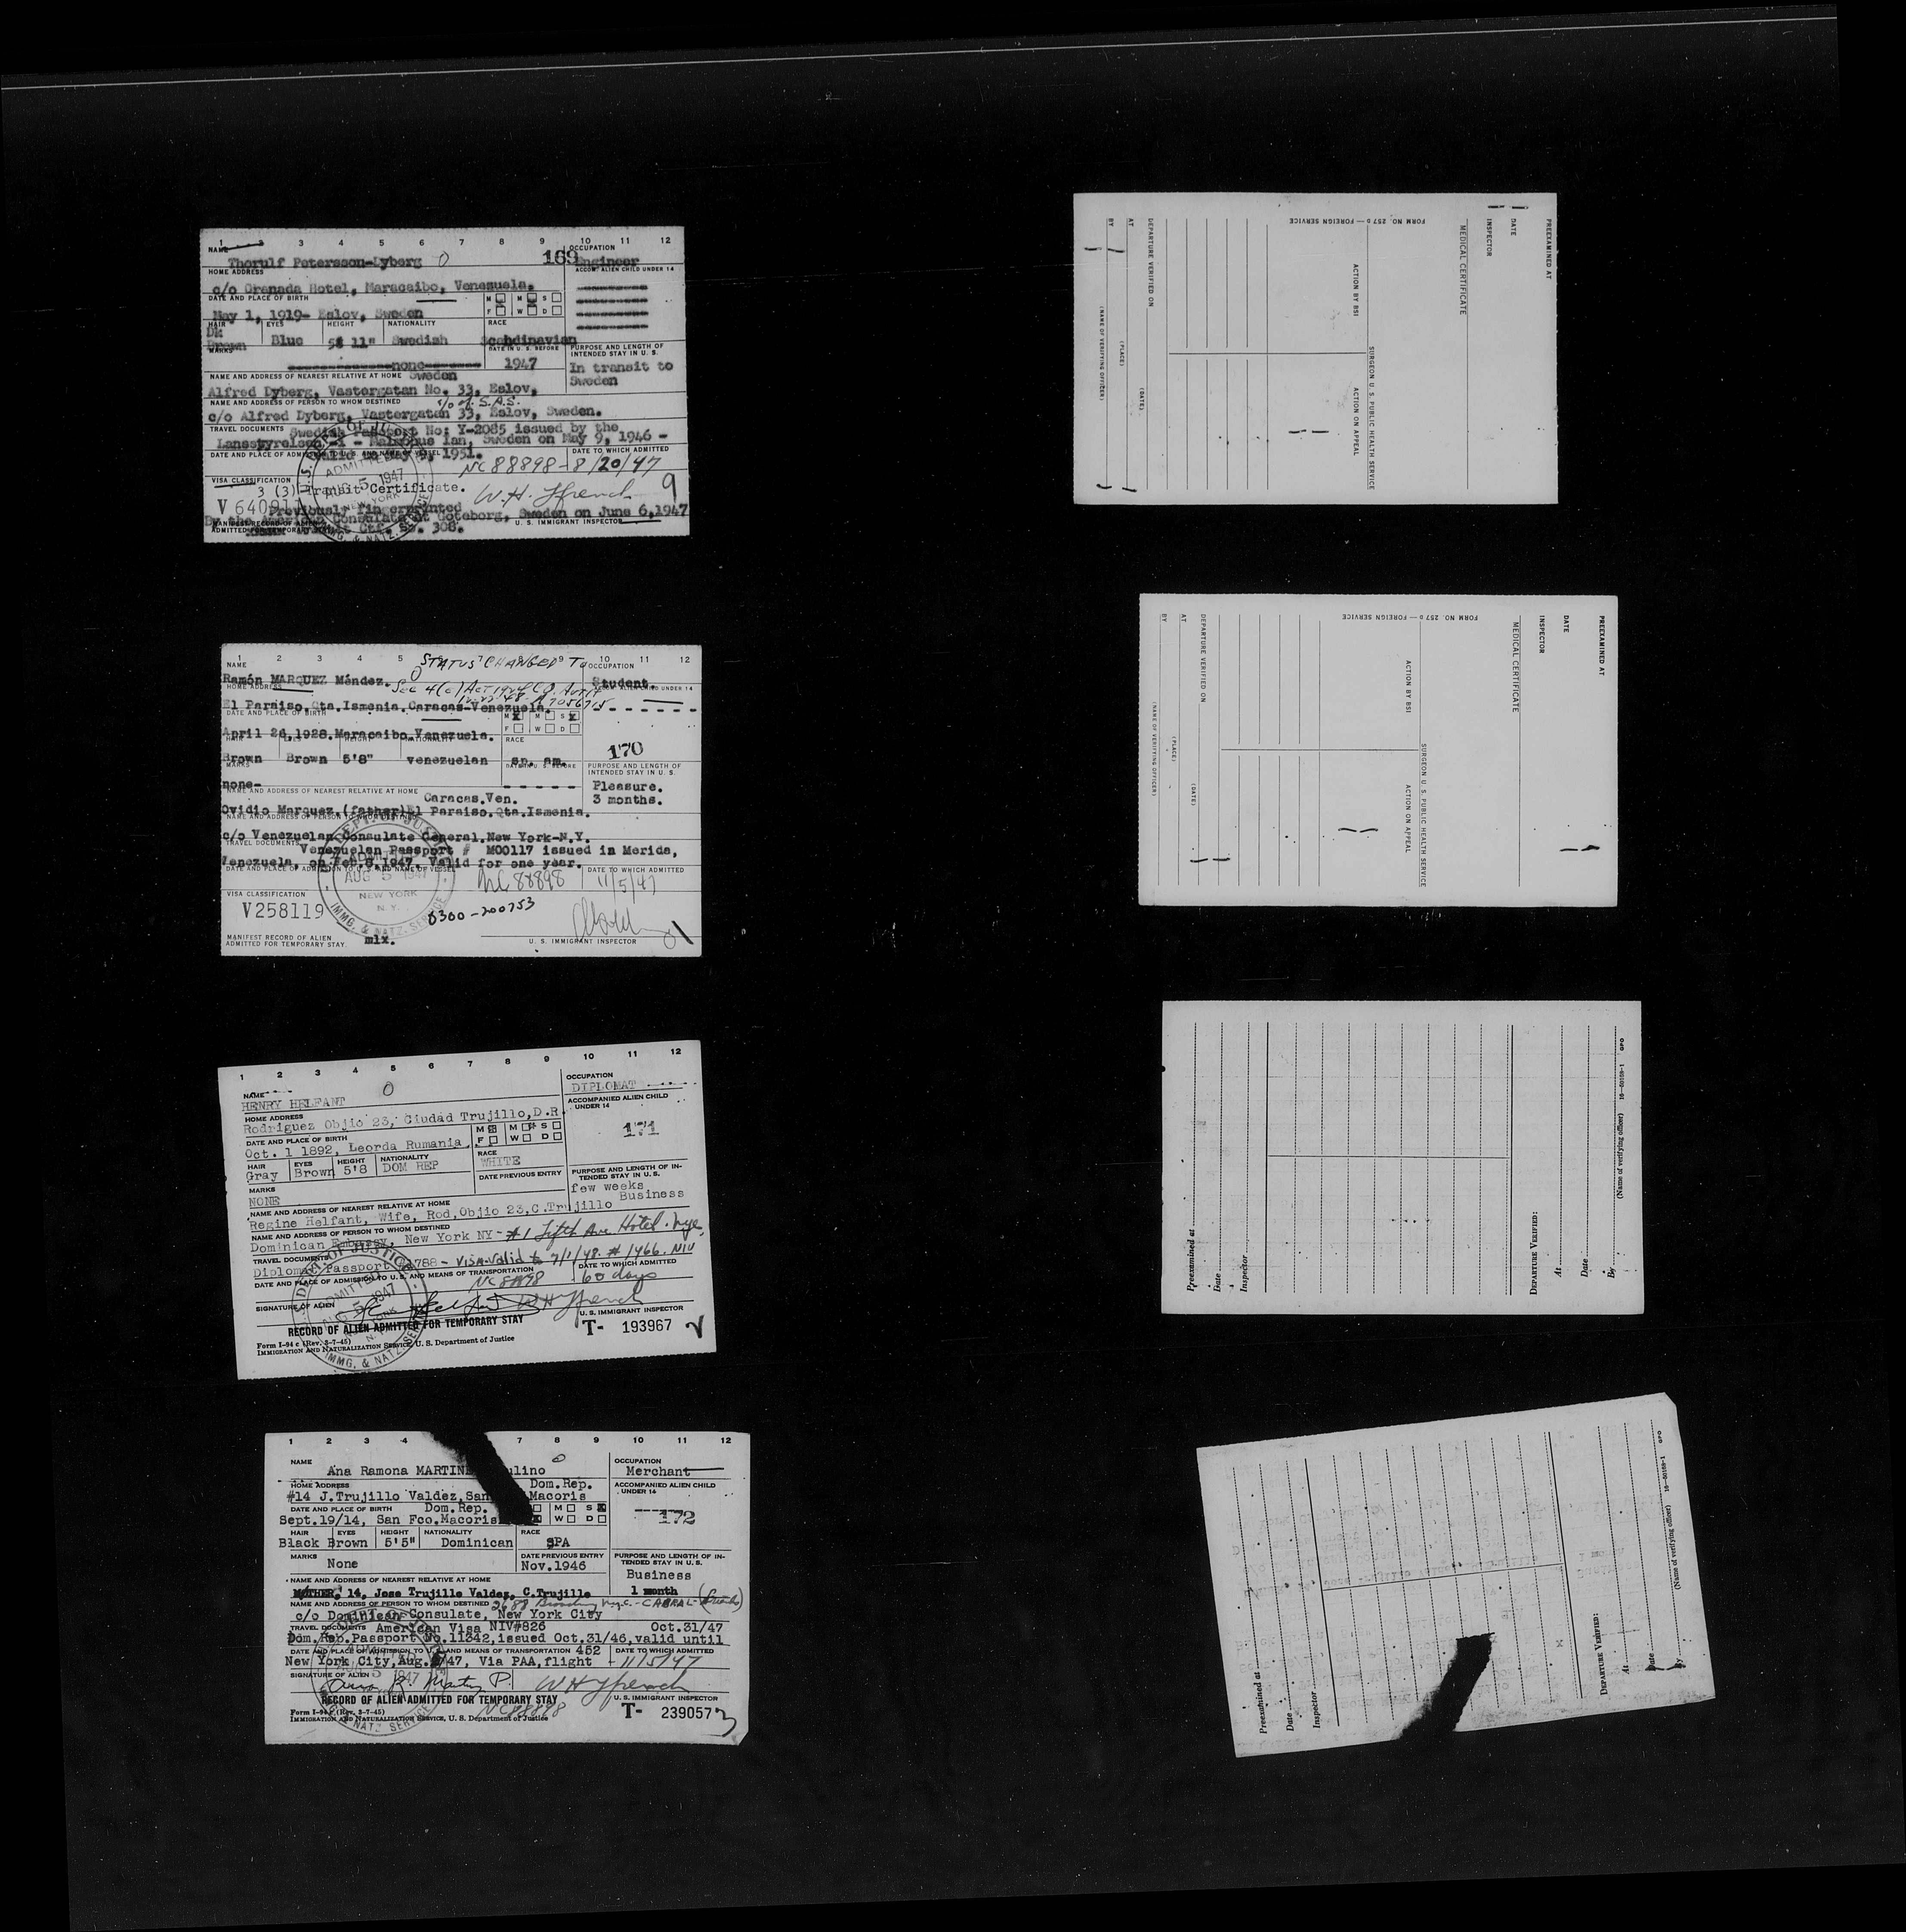 1 2 3 4 5 6 7 8 9 10 11 12
NAME
OCCUPATION
Thorulf Petersson-Dyberg O 169 Engineer
HOME ADDRESS
ACCOMP. ALIEN CHILD UNDER 14
c/o Granada Hotel, Maracaibo, Venezuela.
DATE AND PLACE OF BIRTH
M M S
May 1, 1919- Eslov, Sweden
F W D
HAIR EYES HEIGHT NATIONALITY RACE
Dk
Brown Blue 5' 11" Swedish Scandinavian
MARKS
DATE IN U. S. BEFORE
PURPOSE AND LENGTH OF
INTENDED STAY IN U. S.
none 1947
In transit to
Sweden
NAME AND ADDRESS OF NEAREST RELATIVE AT HOME Sweden
Alfred Dyberg, Vastergatan No. 33, Eslov,
NAME AND ADDRESS OF PERSON TO WHOM DESTINED c/o of. S.A.S.
c/o Alfred Dyberg, Vastergatan 33, Eslov, Sweden.
TRAVEL DOCUMENTS Swedish Passport No: Y-2085 issued by the
Lansstyrelsen -i - Malmohus lan, Sweden on May 9, 1946 -
valid to May 9, 1951.
DATE TO WHICH ADMITTED
NC 88898 - 8/20/47
VISA CLASSIFICATION
3 (3) Transit Certificate.
W.H. Ffrench 9
Previously fingerprinted
By the American Consulate at Goteborg, Sweden on June 6, 1947
MANIFEST RECORD OF ALIEN
ADMITTED FOR TEMPORARY
308.
U. S. IMMIGRANT INSPECTOR
ADMITTED
AUG 5 1947
NEW YORK
1 2 3 4 5 6 7 8 9 10 11 12
NAME
STATUS CHANGED TO
OCCUPATION
Ramón MARQUEZ Méndez. O
Student
HOME ADDRESS
El Paraiso, Qta. Ismenia. Caracas-Venezuela.
DATE AND PLACE OF BIRTH
M X M S X
F W D
April 26, 1928. Maracaibo. Venezuela.
RACE
170
Brown Brown 5'8" venezuelan sp. am.
MARKS
PURPOSE AND LENGTH OF
INTENDED STAY IN U. S.
none-
Pleasure.
3 months.
NAME AND ADDRESS OF NEAREST RELATIVE AT HOME Caracas. Ven.
Ovidio Marquez, (father) El Paraiso. Qta. Ismenia.
NAME AND ADDRESS OF PERSON TO WHOM DESTINED
c/o Venezuelan Consulate General. New York-N.Y.
TRAVEL DOCUMENTS Venezuelan Passport # M00117 issued in Merida,
Venezuela, on Feb. 8, 1947. Valid for one year.
DATE AND PLACE OF ADMISSION TO U. S. AND NAME OF VESSEL
DATE TO WHICH ADMITTED
DEPT. OF JUSTICE
ADMITTED
AUG 5 1947
NEW YORK
N. Y.
IMMG. & NATZ. SERVICE
NC 88898 11/5/47
VISA CLASSIFICATION
V258119
0300-200753
MANIFEST RECORD OF ALIEN
ADMITTED FOR TEMPORARY STAY.
mlx.
U. S. IMMIGRANT INSPECTOR
1 2 3 4 5 6 7 8 9 10 11 12
NAME
O
OCCUPATION
HENRY HELFANT
DIPLOMAT
HOME ADDRESS
ACCOMPANIED ALIEN CHILD
UNDER 14
Rodriguez Objio 23, Ciudad Trujillo, D.R.
DATE AND PLACE OF BIRTH
M M S
F W D
171
Oct. 1 1892, Leorda Rumania
HAIR EYES HEIGHT NATIONALITY RACE
Gray Brown 5'8 DOM REP WHITE
MARKS
DATE PREVIOUS ENTRY
PURPOSE AND LENGTH OF IN-
TENDED STAY IN U. S.
NONE
few weeks
Business
NAME AND ADDRESS OF NEAREST RELATIVE AT HOME
Regine Helfant, Wife, Rod, Objio 23, C. Trujillo
NAME AND ADDRESS OF PERSON TO WHOM DESTINED
Dominican Embassy, New York NY - #1 Fifth Ave. Hotel. nyc.
TRAVEL DOCUMENTS
Diplomat Passport #788 - Visa valid to 7/1/48. #1466. NIV
DATE AND PLACE OF ADMISSION TO U. S. AND MEANS OF TRANSPORTATION
DATE TO WHICH ADMITTED
NC 88898 - 60 days
SIGNATURE OF ALIEN
WH Ffrench
U. S. IMMIGRANT INSPECTOR
RECORD OF ALIEN ADMITTED FOR TEMPORARY STAY
T- 193967
Form I-94 c (Rev. 3-7-45)
IMMIGRATION AND NATURALIZATION SERVICE, U. S. Department of Justice
1 2 3 4 7 8 9 10 11 12
NAME
O
OCCUPATION
Ana Ramona MARTIN ulino
Merchant
HOME ADDRESS Dom. Rep.
ACCOMPANIED ALIEN CHILD
UNDER 14
#14 J. Trujillo Valdez, San Macoris
DATE AND PLACE OF BIRTH Dom. Rep.
M S X
W D
172
Sept. 19/14, San Fco. Macoris
HAIR EYES HEIGHT NATIONALITY RACE
Black Brown 5'5" Dominican SPA
MARKS
None
DATE PREVIOUS ENTRY
Nov. 1946
PURPOSE AND LENGTH OF IN-
TENDED STAY IN U. S.
Business
1 month
NAME AND ADDRESS OF NEAREST RELATIVE AT HOME
MOTHER, 14, Jose Trujillo Valdez, C. Trujillo
NAME AND ADDRESS OF PERSON TO WHOM DESTINED 2688 Broadway nyc. - CABRAL (friend)
c/o Dominican Consulate, New York City
TRAVEL DOCUMENTS American Visa NIV#826 Oct. 31/47
Dom. Rep. Passport No. 11342, issued Oct. 31/46, valid until
DATE AND PLACE OF ADMISSION TO U. S. AND MEANS OF TRANSPORTATION 452
DATE TO WHICH ADMITTED
New York City, Aug. /47, Via PAA, flight - 11/5/47
SIGNATURE OF ALIEN
WH Ffrench
RECORD OF ALIEN ADMITTED FOR TEMPORARY STAY
U. S. IMMIGRANT INSPECTOR
NC 88898
T- 239057
3
Form I-94 (Rev. 3-7-45)
IMMIGRATION AND NATURALIZATION SERVICE, U. S. Department of Justice
PREEXAMINED AT
DATE
INSPECTOR
MEDICAL CERTIFICATE
SURGEON U. S. PUBLIC HEALTH SERVICE
ACTION BY BSI
ACTION ON APPEAL
DEPARTURE VERIFIED ON
(DATE)
AT
(PLACE)
BY
(NAME OF VERIFYING OFFICER)
FORM NO. 257 D — FOREIGN SERVICE
PREEXAMINED AT
DATE
INSPECTOR
MEDICAL CERTIFICATE
SURGEON U. S. PUBLIC HEALTH SERVICE
ACTION BY BSI
ACTION ON APPEAL
DEPARTURE VERIFIED ON
(DATE)
AT
(PLACE)
BY
(NAME OF VERIFYING OFFICER)
FORM NO. 257 D — FOREIGN SERVICE
Preexamined at
Date
Inspector
DEPARTURE VERIFIED:
At
Date
By
(Name of verifying officer)
16—60198-1 GPO
Preexamined at
Date
Inspector
DEPARTURE VERIFIED:
At
Date
By
(Name of verifying officer)
16—60198-1 GPO